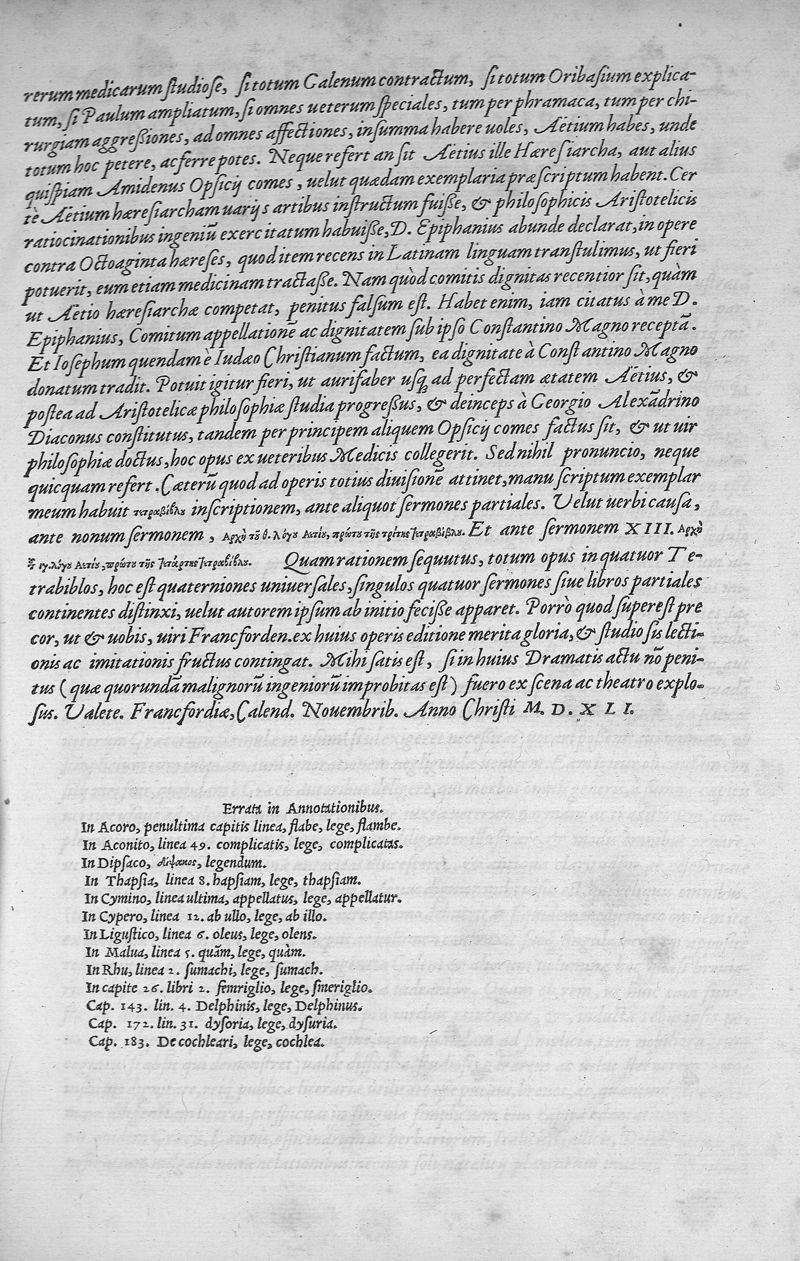 rerum medicarum ſtudioſe, ſi totum Galenum contractum, ſi totum Oribaſium explica-
tum, ſi Paulum ampliatum, ſi omnes ueterum ſpeciales, tum per phramaca, tum per chi-
rurgiam aggreßiones, ad omnes affectiones, in ſumma habere uoles, Aëtium habes, unde
totum hoc petere, ac ferre potes. Neque refert an ſit Aëtius ille Hæreſiarcha, aut alius
quiſpiam Amidenus Opſicij comes, uelut quædam exemplaria præſcriptum habent. Cer
tè Aëtium hæreſiarcham uarijs artibus inſtructum fuiße, & philoſophicis Ariſtotelicis
ratiocinationibus ingeniũ exercitatum habuiße, D. Epiphanius abunde declarat, in opere
contra Octoaginta hæreſes, quod item recens in Latinam linguam tranſtulimus, ut fieri
potuerit, eum etiam medicinam tractaße. Nam quòd comitis dignitas recentior ſit, quàm
ut Aëtio hæreſiarchæ competat, penitus falſum eſt. Habet enim, iam citatus à me D.
Epiphanius, Comitum appellationẽ ac dignitatem ſub ipſo Conſtantino Magno receptã.
Et Ioſephum quendam è Iudæo Chriſtianum factum, ea dignitate à Conſtantino Magno
donatum tradit. Potuit igitur fieri, ut aurifaber uſq; ad perfectam ætatem Aëtius, &
poſtea ad Ariſtotelicæ philoſophiæ ſtudia progreßus, & deinceps à Georgio Alexãdrino
Diaconus conſtitutus, tandem per principem aliquem Opſicij comes factus ſit, & ut uir
philoſophiæ doctus, hoc opus ex ueteribus Medicis collegerit. Sed nihil pronuncio, neque
quicquam refert. Cæterũ quod ad operis totius diuiſionẽ attinet, manu ſcriptum exemplar
meum habuit τετραβίβλυ inſcriptionem, ante aliquot ſermones partiales. Velut uerbi cauſa,
ante nonum ſermonem, Ἀρχὴ τοῦ θ. λόγου Ἀετίου, πρώτου τῆς τρίτης τετραβίβλου. Et ante ſermonem XIII. Ἀρχὴ
τοῦ ιγ. λόγου Ἀετίου, πρώτου τῆς τετάρτης τετραβίβλου. Quam rationem ſequutus, totum opus in quatuor Te-
trabiblos, hoc eſt quaterniones uniuerſales, ſingulos quatuor ſermones ſiue libros partiales
continentes diſtinxi, uelut autorem ipſum ab initio feciße apparet. Porrò quod ſupereſt pre
cor, ut & uobis, uiri Francforden. ex huius operis editione merita gloria, & ſtudioſis lecti-
onis ac imitationis fructus contingat. Mihi ſatis eſt, ſi in huius Dramatis actu nõ peni-
tus (quæ quorundã malignorũ ingeniorũ improbitas eſt) fuero ex ſcena ac theatro explo-
ſus. Valete. Francfordiæ, Calend. Nouembrib. Anno Chriſti M. D. X L I.
Errata in Annotationibus.
In Acoro, penultima capitis linea, flabe, lege, flambe.
In Aconito, linea 49. complicatis, lege, complicatas.
In Dipſaco, δίψακος, legendum.
In Thapſia, linea 8. hapſiam, lege, thapſiam.
In Cymino, linea ultima, appellatus, lege, appellatur.
In Cypero, linea 12. ab ullo, lege, ab illo.
In Liguſtico, linea 6. oleus, lege, olens.
In Malua, linea 5. quãm, lege, quàm.
In Rhu, linea 2. ſumachi, lege, ſumach.
In capite 26. libri 2. ſemriglio, lege, ſmeriglio.
Cap. 143. lin. 4. Delphinis, lege, Delphinus.
Cap. 172. lin. 31. dyſoria, lege, dyſuria.
Cap. 183. De cochleari, lege, cochlea.